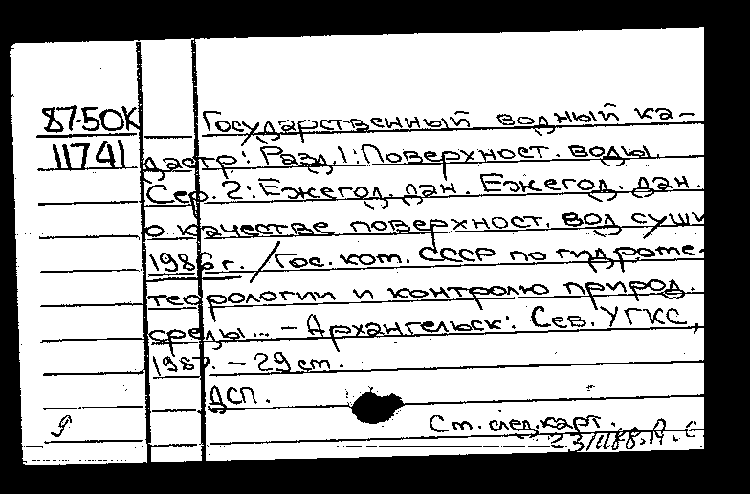 87-50К Государственный водный ка-
11741 дастр: Разд. 1: Поверхност. воды.
Сер. 2: Ежегод. дан. Ежегод. дан.
о качестве поверхност. вод суши
1986 г. / Гос. ком. СССР по гидроме-
теорологии и контролю природ.
среды... - Архангельск: Сев. УГКС,
1987. - 29 cm.
ДСП.
Cm. след. карт.